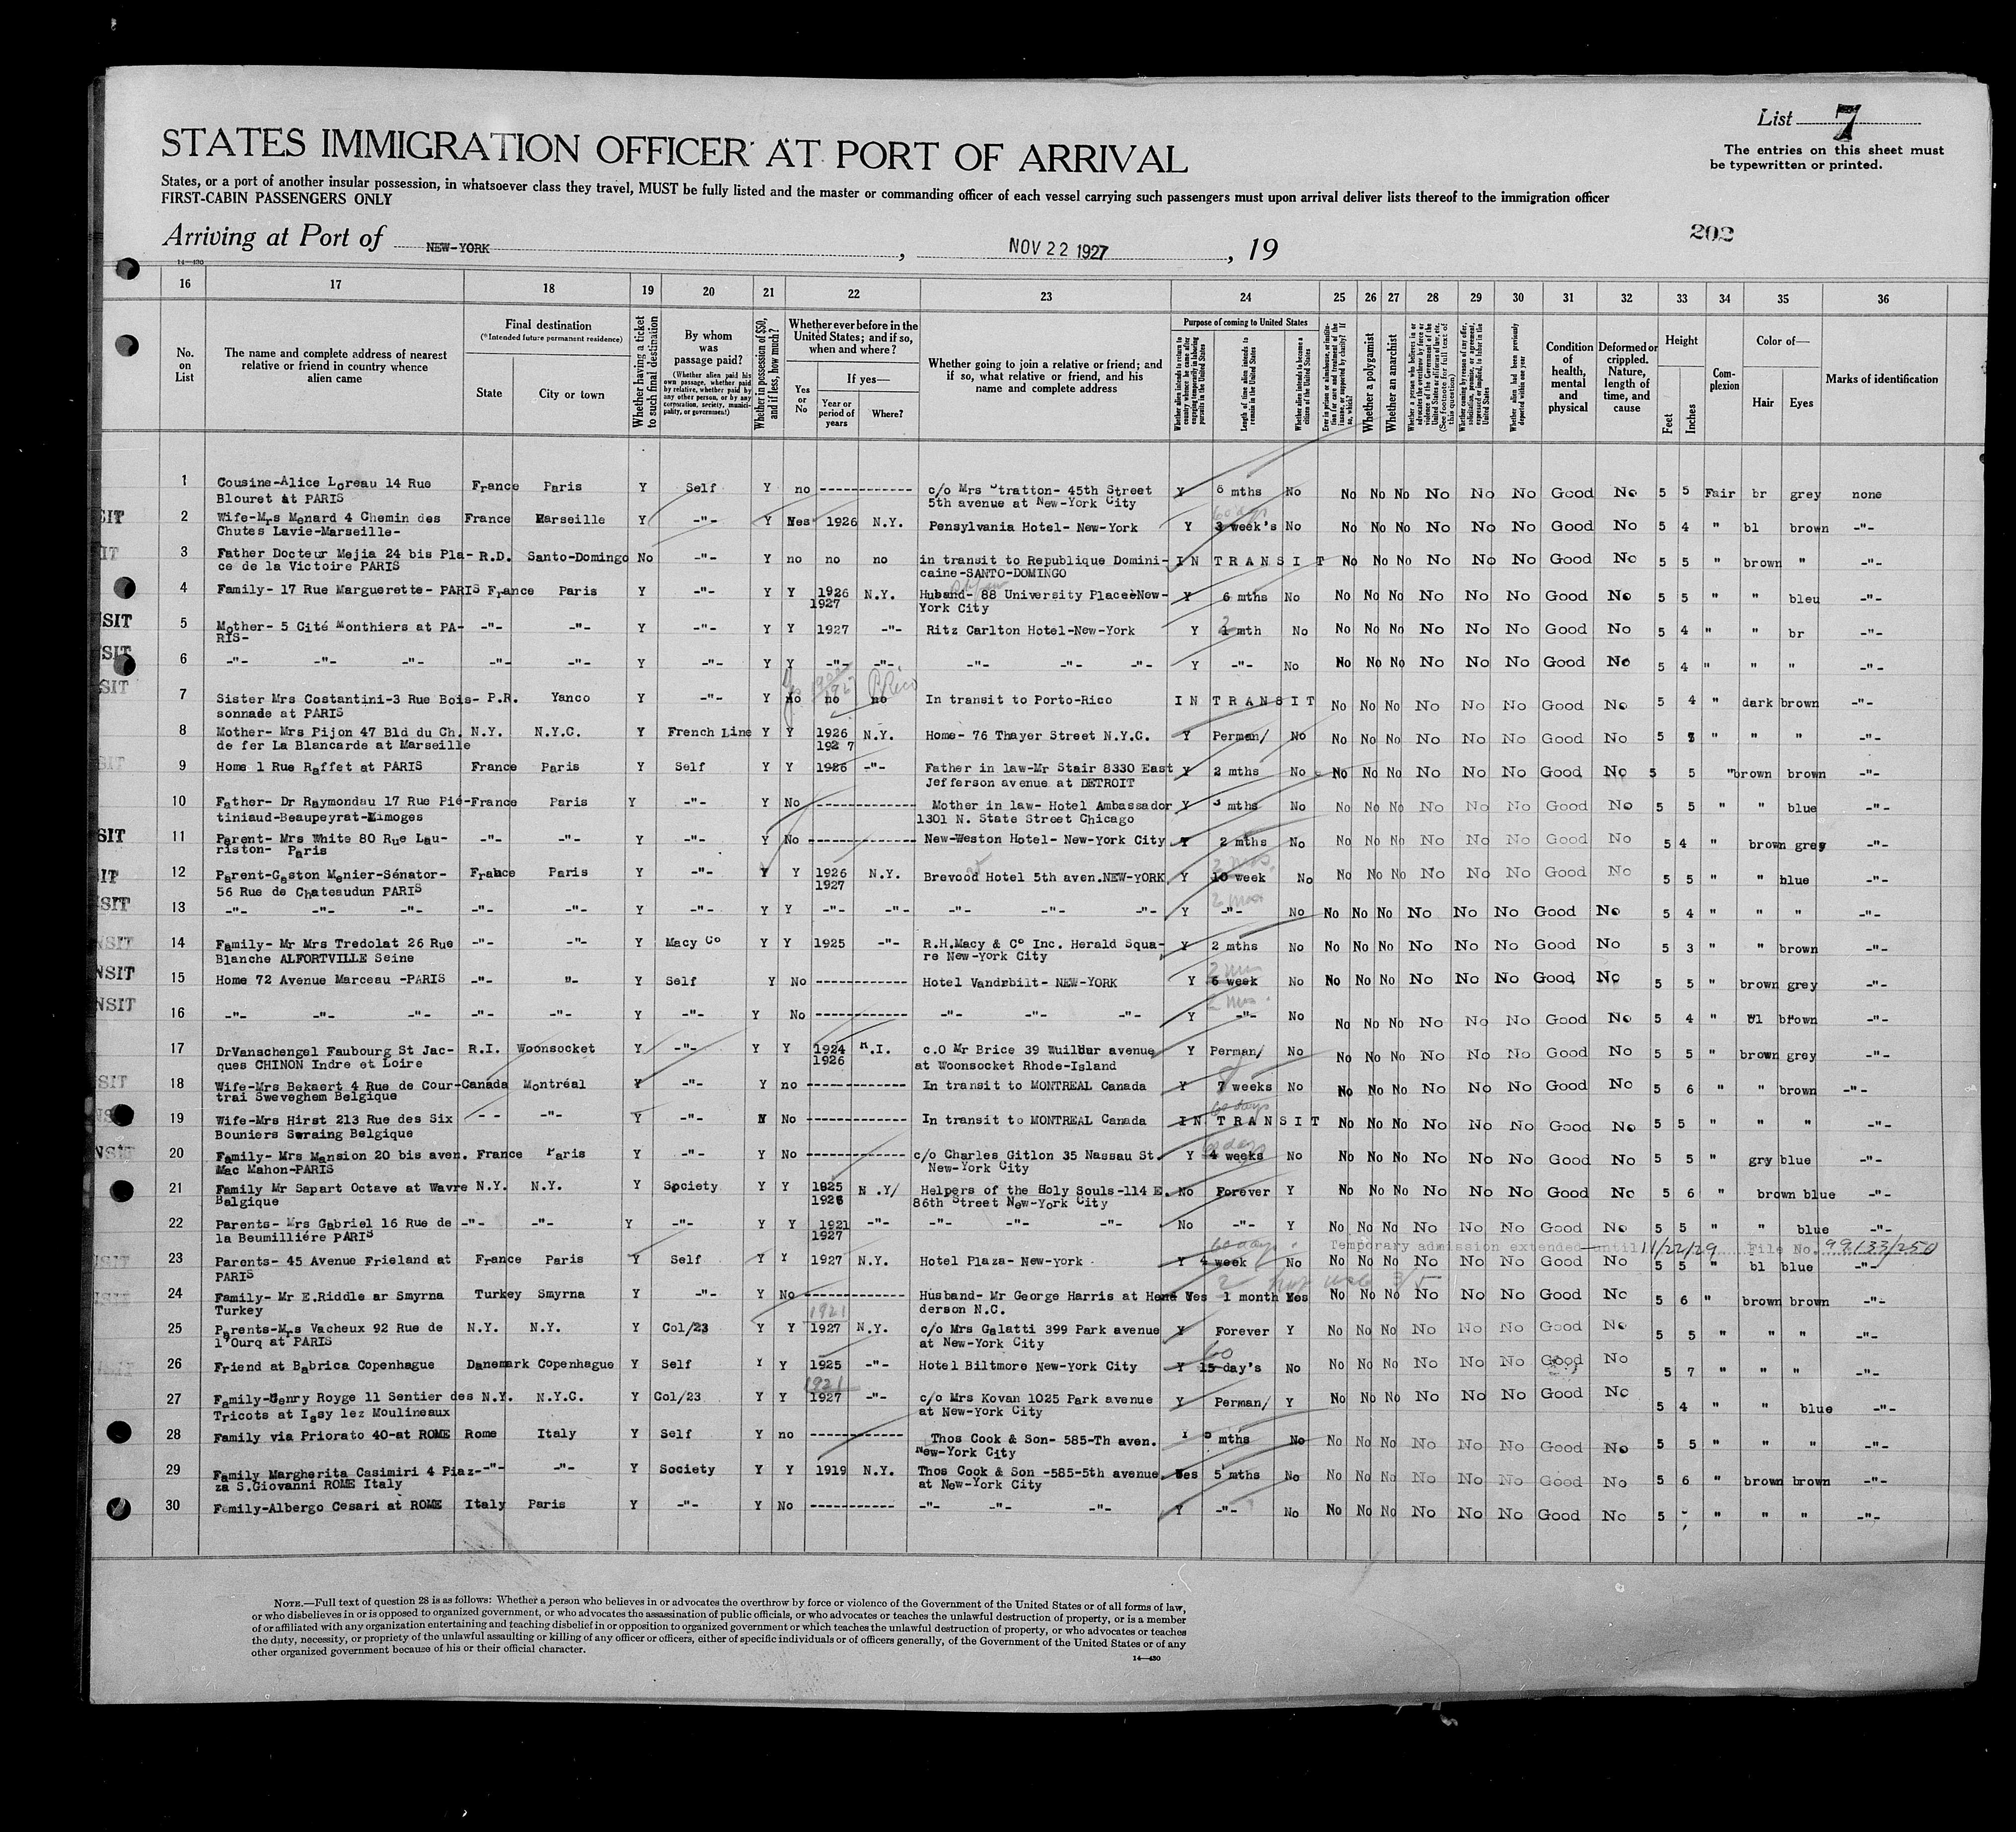 List 7
The entries on this sheet must
be typewritten or printed.
STATES IMMIGRATION OFFICER AT PORT OF ARRIVAL
States, or a port of another insular possession, in whatsoever class they travel, MUST be fully listed and the master or commanding officer of each vessel carrying such passengers must upon arrival deliver lists thereof to the immigration officer
FIRST-CABIN PASSENGERS ONLY
202
Arriving at Port of NEW-YORK , NOV 22 1927 , 19
14—430
16 17 18 19 20 21 22 23 24 25 26 27 28 29 30 31 32 33 34 35 36
No. on List
The name and complete address of nearest relative or friend in country whence alien came
Final destination (*Intended future permanent residence)
State
City or town
Whether having a ticket to such final destination
By whom was passage paid?
(Whether alien paid his own passage, whether paid by relative, whether paid by any other person, or by any corporation, society, municipality, or government)
Whether in possession of $50, and if less, how much?
Whether ever before in the United States; and if so, when and where?
Yes or No
If yes—
Year or period of years
Where?
Whether going to join a relative or friend; and if so, what relative or friend, and his name and complete address
Purpose of coming to United States
Whether alien intends to return to country whence he came after engaging temporarily in laboring pursuits in the United States
Length of time alien intends to remain in the United States
Whether alien intends to become a citizen of the United States
Ever in prison or almshouse, or institution for care and treatment of the insane, or supported by charity? If so, which?
Whether a polygamist
Whether an anarchist
Whether a person who believes in or advocates the overthrow by force or violence of the Government of the United States or all forms of law, etc. (See footnote for full text of this question)
Whether coming by reason of any offer, solicitation, promise, or agreement, expressed or implied, to labor in the United States
Whether alien had been previously deported within one year
Condition of health, mental and physical
Deformed or crippled. Nature, length of time, and cause
Height
Feet
Inches
Complexion
Color of—
Hair
Eyes
Marks of identification
1 Cousine-Alice Loreau 14 Rue France Paris Y Self Y no ------------ c/o Mrs Stratton- 45th Street Y 6 mths No No No No No No No Good No 5 5 Fair br grey none
Blouret at PARIS 5th avenue at New-York City
2 Wife-Mrs Menard 4 Chemin des France Marseille Y -"- Y Yes 1926 N.Y. Pensylvania Hotel- New-York Y 60 days 3 week's No No No No No No No Good No 5 4 " bl brown -"-
Chutes Lavie-Marseille-
3 Father Docteur Mejia 24 bis Pla- R.D. Santo-Domingo No -"- Y no no no in transit to Republique Domini- IN TRANSIT No No No No No No Good No 5 5 " brown " -"-
ce de la Victoire PARIS caine-SANTO-DOMINGO
4 Family- 17 Rue Marguerette- PARIS France Paris Y -"- Y Y 1926 N.Y. Huband- 88 University Place-New- Y 6 mths No No No No No No No Good No 5 5 " " bleu -"-
1927 York City
5 Mother- 5 Cité Monthiers at PA- -"- -"- Y -"- Y Y 1927 -"- Ritz Carlton Hotel-New-York Y 2 1 mth No No No No No No No Good No 5 4 " " br -"-
RIS-
6 -"- -"- -"- -"- -"- Y -"- Y Y -"- -"- -"- -"- -"- Y -"- No No No No No No No Good No 5 4 " " " -"-
7 Sister Mrs Costantini-3 Rue Bois- P.R. Yanco Y -"- Y no no no P. Rico In transit to Porto-Rico IN TRANSIT No No No No No No Good No 5 4 " dark brown -"-
sonnade at PARIS
8 Mother- Mrs Pijon 47 Bld du Ch. N.Y. N.Y.C. Y French Line Y Y 1926 N.Y. Home- 76 Thayer Street N.Y.C. Y Perman/ No No No No No No No Good No 5 " " " -"-
de fer La Blancarde at Marseille 1927
9 Home 1 Rue Raffet at PARIS France Paris Y Self Y Y 1926 -"- Father in law-Mr Stair 8330 East Y 2 mths No No No No No No No Good No 5 5 " brown brown -"-
Jefferson avenue at DETROIT
10 Father- Dr Raymondau 17 Rue Pié- France Paris Y -"- Y No ------------ Mother in law- Hotel Ambassador Y 3 mths No No No No No No No Good No 5 5 " " blue -"-
tiniaud-Beaupeyrat-Limoges 1301 N. State Street Chicago
11 Parent- Mrs White 80 Rue Lau- -"- -"- Y -"- Y No ------------ New-Weston Hotel- New-York City Y 2 mths No No No No No No No Good No 5 4 " brown grey -"-
riston- Paris
12 Parent-Gaston Menier-Sénator- France Paris Y -"- Y Y 1926 N.Y. Brevood Hotel 5th aven.NEW-YORK Y 2 mos. 10 week No No No No No No No Good No 5 5 " " blue -"-
56 Rue de Chateaudun PARIS 1927
13 -"- -"- -"- -"- -"- Y -"- Y Y -"- -"- -"- -"- -"- Y 2 mos -"- No No No No No No No Good No 5 4 " " " -"-
14 Family- Mr Mrs Tredolat 26 Rue -"- -"- Y Macy Co Y Y 1925 -"- R.H.Macy & Co Inc. Herald Squa- Y 2 mths No No No No No No No Good No 5 3 " " brown -"-
Blanche ALFORTVILLE Seine re New-York City
15 Home 72 Avenue Marceau -PARIS -"- "- Y Self Y No ------------ Hotel Vandrbilt- NEW-YORK Y 6 week No No No No No No No Good No 5 5 " brown grey -"-
16 -"- -"- -"- -"- -"- Y -"- Y No ------------ -"- -"- -"- Y 2 mos. -"- No No No No No No No Good No 5 4 " bl brown -"-
17 DrVanschengel Faubourg St Jac- R.I. Woonsocket Y -"- Y Y 1924 R.I. c.O Mr Brice 39 Wuilbur avenue Y Perman/ No No No No No No No Good No 5 5 " brown grey -"-
ques CHINON Indre et Loire 1926 at Woonsocket Rhode-Island
18 Wife-Mrs Bekaert 4 Rue de Cour- Canada Montréal Y -"- Y no ------------ In transit to MONTREAL Canada Y 7 weeks No No No No No No No Good No 5 6 " " brown -"-
trai Sweveghem Belgique
19 Wife-Mrs Hirst 213 Rue des Six - - -"- Y -"- No ------------ In transit to MONTREAL Canada 60 days IN TRANSIT No No No No No No Good No 5 5 " " " -"-
Bouniers Seraing Belgique
20 Family- Mrs Mansion 20 bis aven. France Paris Y -"- Y No ------------ c/o Charles Gitlon 35 Nassau St. Y 60 days 4 weeks No No No No No No No Good No 5 5 " gry blue -"-
Mac Mahon-PARIS New-York City
21 Family Mr Sapart Octave at Wavre N.Y. N.Y. Y Society Y Y 1925 N .Y/ Helpers of the Holy Souls-114 E. No Forever Y No No No No No No Good No 5 6 " brown blue -"-
Belgique 1926 86th Street New-York City
22 Parents- Mrs Gabriel 16 Rue de -"- -"- Y -"- Y Y 1921 -"- -"- -"- -"- No -"- Y No No No No No No Good No 5 5 " " blue -"-
la Beumilliére PARIS 1927
Temporary admission extended until 11/22/29 File No. 99133/250
23 Parents- 45 Avenue Frieland at France Paris Y Self Y Y 1927 N.Y. Hotel Plaza- New-york Y 60 days 4 week No No No No No No No Good No 5 5 " bl blue -"-
PARIS
24 Family- Mr E.Riddle ar Smyrna Turkey Smyrna Y -"- Y No ------------ Husband- Mr George Harris at Hen- Yes 1 month Yes No No No No No No Good No 5 6 " brown brown -"-
Turkey derson N.C.
25 Parents-Mrs Vacheux 92 Rue de N.Y. N.Y. Y Col/23 Y Y 1921 1927 N.Y. c/o Mrs Galatti 399 Park avenue Y Forever Y No No No No No No Good No 5 5 " " " -"-
l'Ourq at PARIS at New-York City
26 Friend at Babrica Copenhague Danemark Copenhague Y Self Y Y 1925 -"- Hotel Biltmore New-York City Y 60 15 day's No No No No No No No Good No 5 7 " " " -"-
27 Family-Henry Royge 11 Sentier des N.Y. N.Y.C. Y Col/23 Y Y 1921 1927 -"- c/o Mrs Kovan 1025 Park avenue Y Perman/ Y No No No No No No Good No 5 4 " " blue -"-
Tricots at Issy lez Moulineaux at New-York City
28 Family via Priorato 40-at ROME Rome Italy Y Self Y no ------------ Thos Cook & Son- 585-Th aven. mths No No No No No No No Good No 5 5 " " " -"-
New-York City
29 Family Margherita Casimiri 4 Piaz- -"- -"- Y Society Y Y 1919 N.Y. Thos Cook & Son -585-5th avenue. Yes 5 mths No No No No No No No Good No 5 6 " brown brown -"-
za S.Giovanni ROME Italy at New-York City
30 Family-Albergo Cesari at ROME Italy Paris Y -"- Y No ----------- -"- -"- -"- Y -"- No No No No No No No Good No 5 " " " -"-
NOTE.—Full text of question 28 is as follows: Whether a person who believes in or advocates the overthrow by force or violence of the Government of the United States or of all forms of law,
or who disbelieves in or is opposed to organized government, or who advocates the assassination of public officials, or who advocates or teaches the unlawful destruction of property, or is a member
of or affiliated with any organization entertaining and teaching disbelief in or opposition to organized government or which teaches the unlawful destruction of property, or who advocates or teaches
the duty, necessity, or propriety of the unlawful assaulting or killing of any officer or officers, either of specific individuals or of officers generally, of the Government of the United States or of any
other organized government because of his or their official character.
14—430